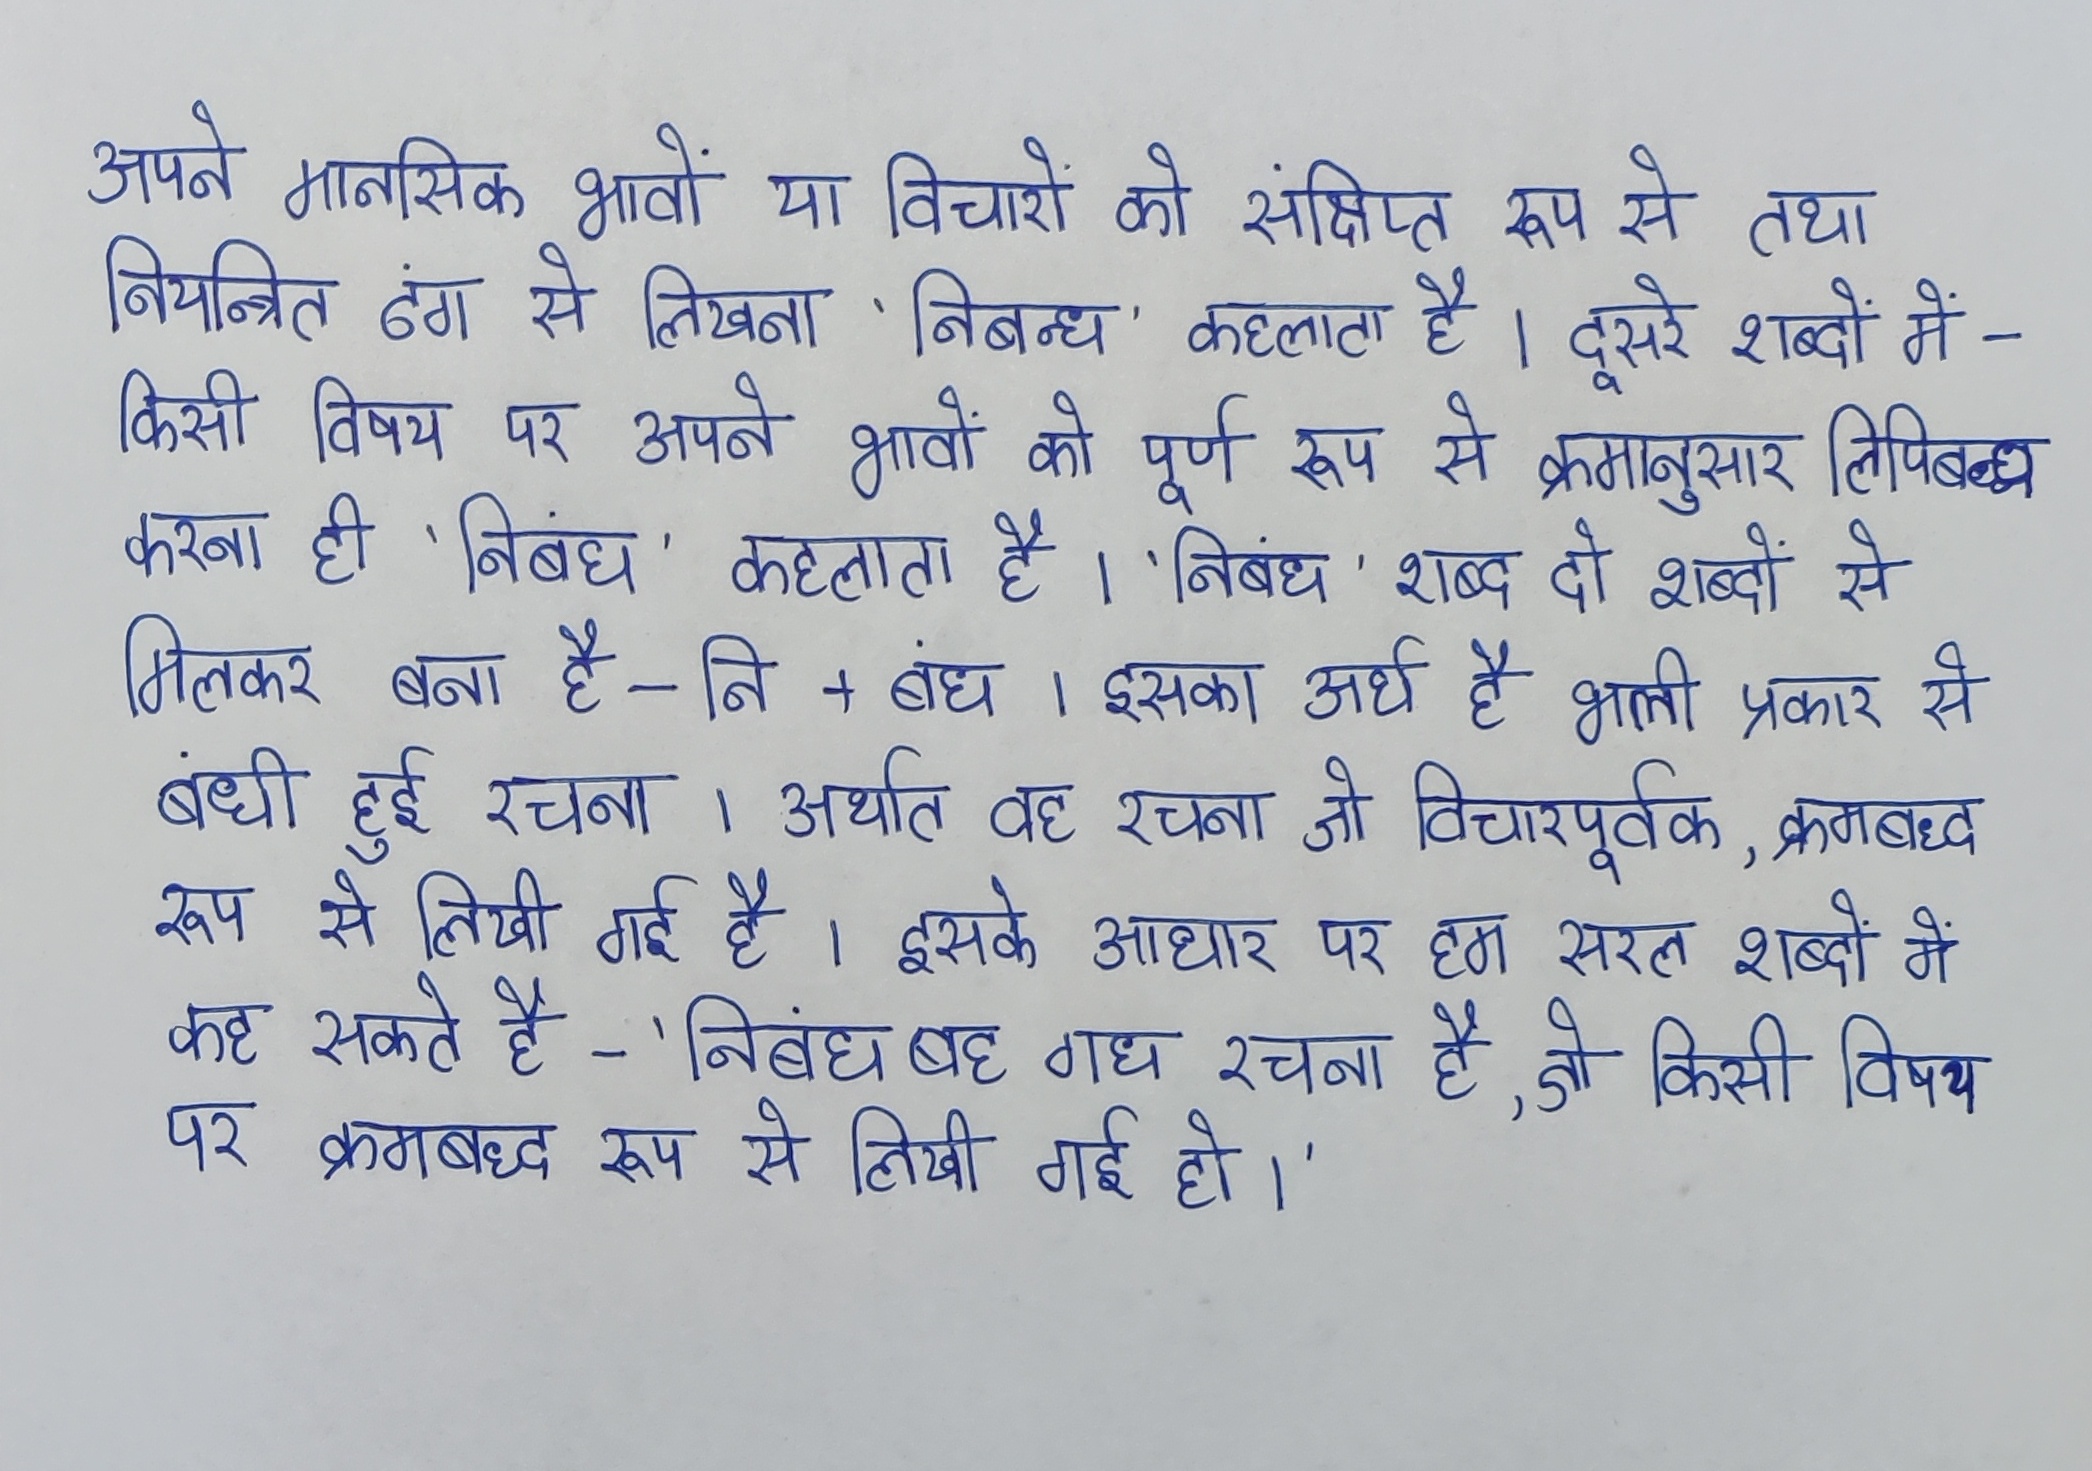 अपने मानसिक भावों या विचारों को संक्षिप्त रूप से तथा
नियन्त्रित ढंग से लिखना 'निबन्ध' कहलाता है । दूसरे शब्दों में -
किसी विषय पर अपने भावों को पूर्ण रूप से क्रमानुसार लिपिबन्ध
करना ही 'निबंध' कहलाता है । 'निबंध' शब्द दो शब्दों से
मिलकर बना है - नि + बंध । इसका अर्थ है भली प्रकार से
बंधी हुई रचना । अर्थात वह रचना जो विचारपूर्वक, क्रमबध्द
रूप से लिखी गई है । इसके आधार पर हम सरल शब्दों में
कह सकते है - 'निबंध बह गध रचना है, जो किसी विषय
पर क्रमबध्द रूप से लिखी गई हो ।'